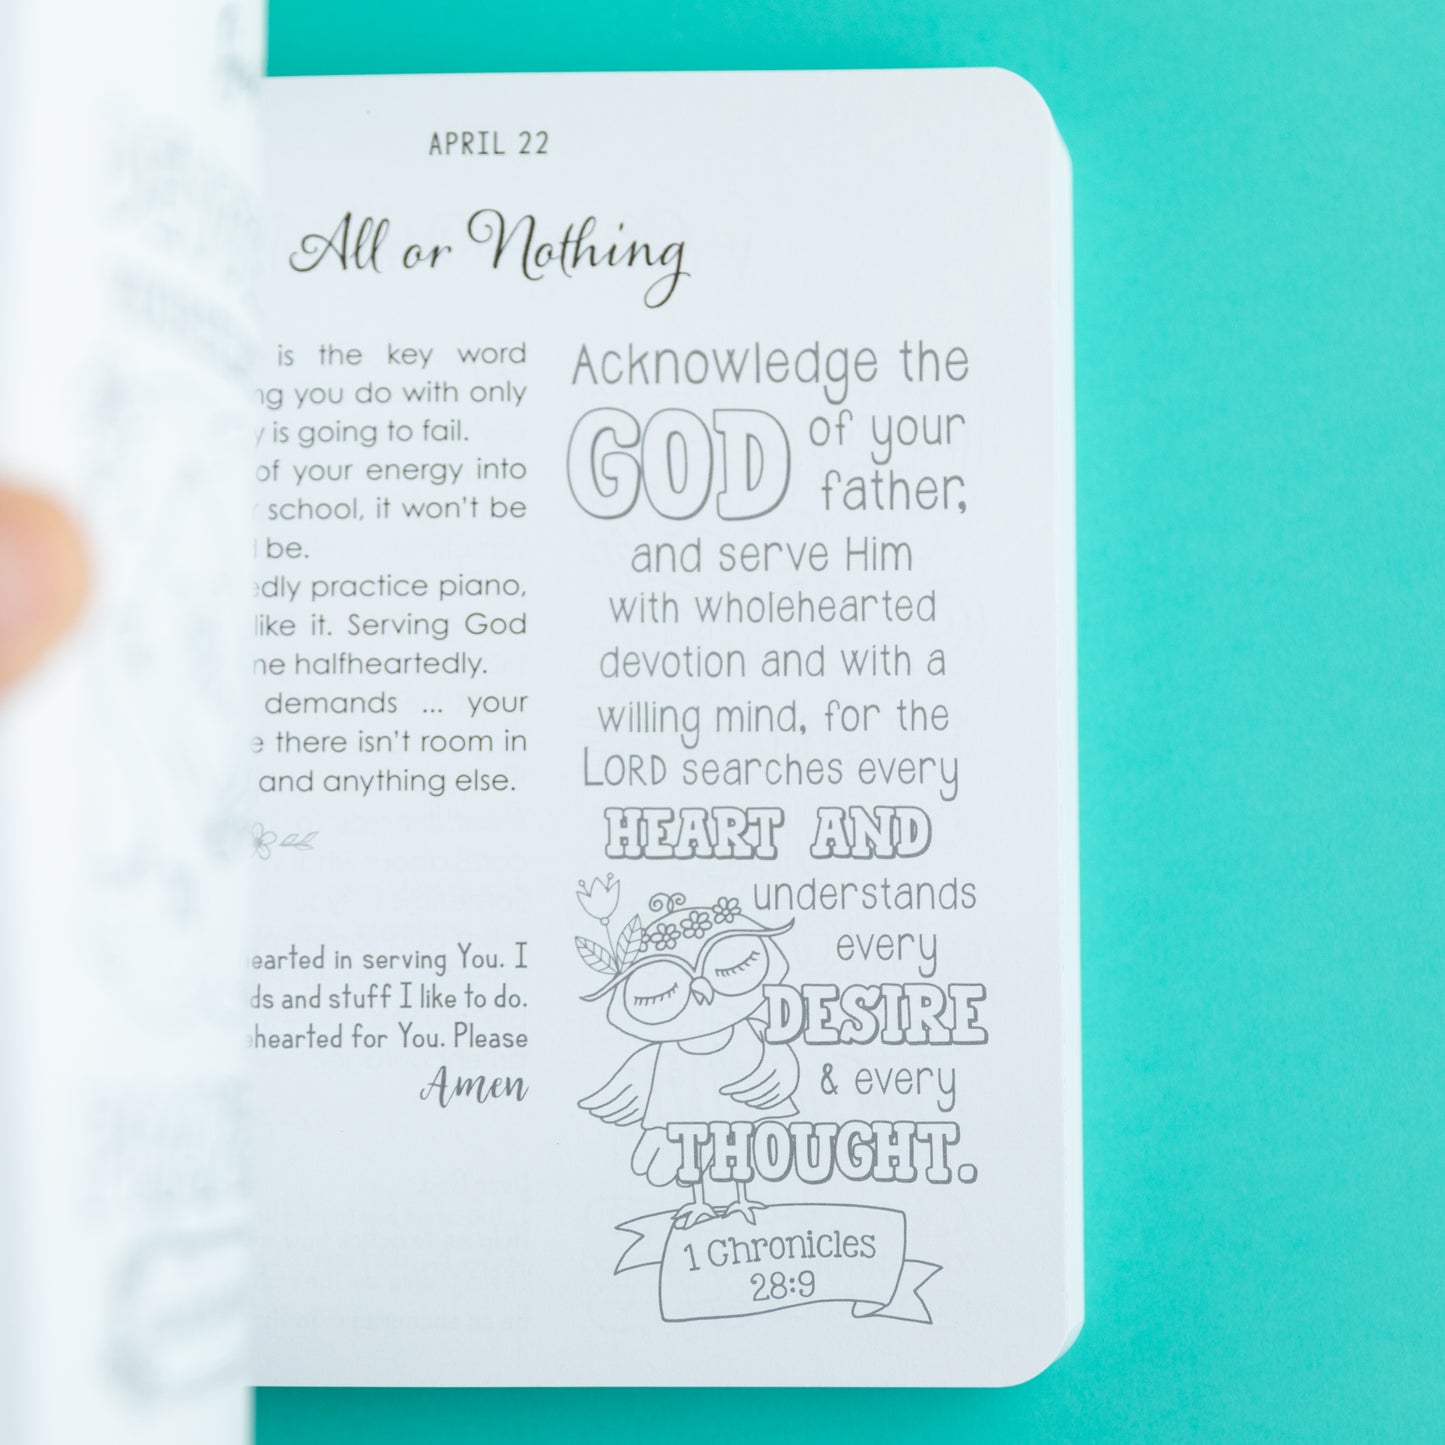 APRIL 22
All or Nothing
is the key word
you do with only
is going to fail.
of your energy into
school, it won't be
be.
practice piano,
like it. Serving God
halfheartedly.
demands ... your
there isn't room in
and anything else.
in serving You. I
and stuff I like to do.
for You. Please
Amen
Acknowledge the
GOD of your
father,
and serve Him
with wholehearted
devotion and with a
willing mind, for the
LORD searches every
HEART AND
understands
every
DESIRE
& every
THOUGHT.
1 Chronicles
28:9